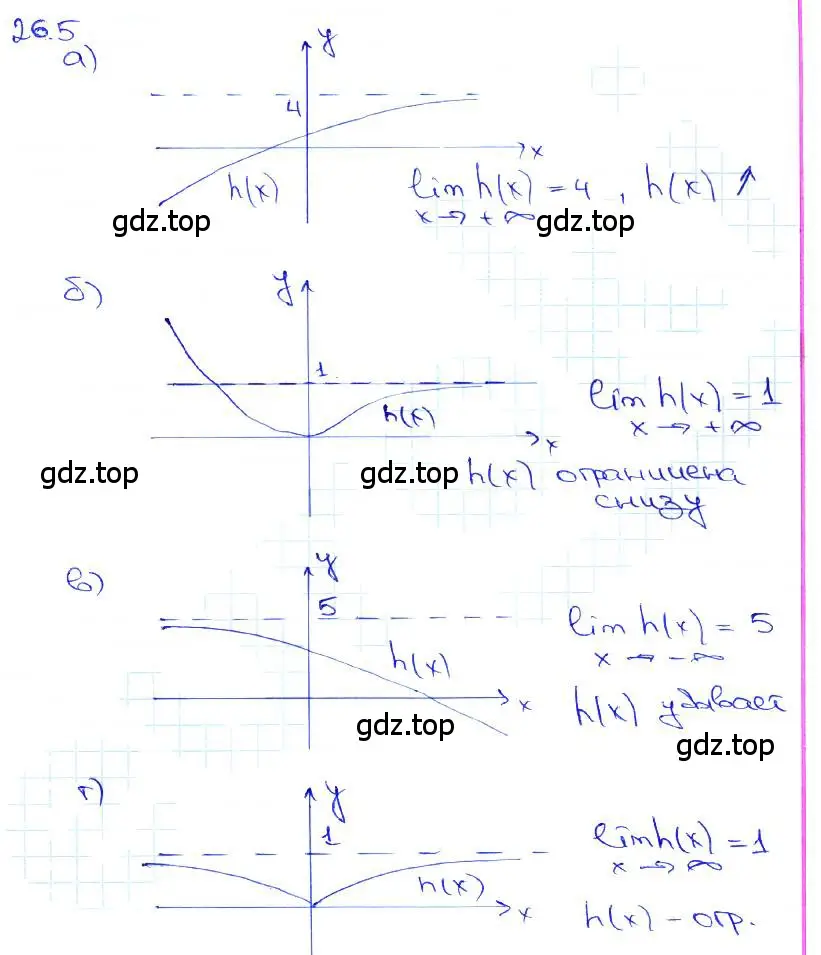 26.5
а)
y
4
x
h(x)
lim h(x) = 4 , h(x) ↑
x → + ∞
gdz.top
gdz.top
б)
y
1
h(x)
x
lim h(x) = 1
x → + ∞
gdz.top
gdz.top
h(x) ограничена
снизу
в)
y
5
h(x)
x
lim h(x) = 5
x → - ∞
h(x) убывает
gdz.top
gdz.top
г)
y
1
h(x)
x
lim h(x) = 1
x → ∞
h(x) - огр.